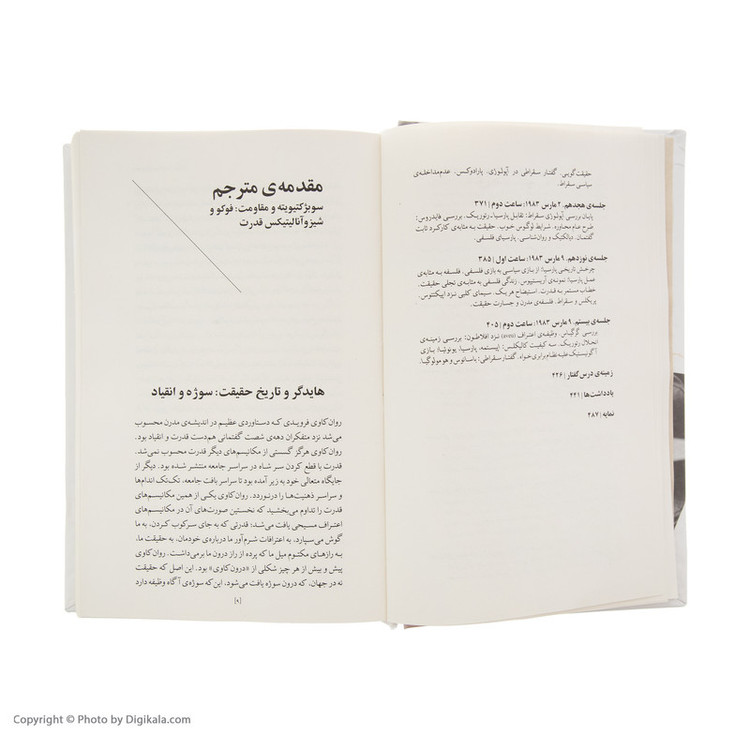 حقیقت‌گویی. گفتار سقراطی در آپولوژی. پارادوکس. عدم‌مداخله‌ی
سیاسی سقراط.
جلسه‌ی هجدهم. ۲ مارس ۱۹۸۳: ساعت دوم | ۳۷۱
پایان بررسی آپولوژی سقراط: تقابل پارسیا-رتوریک. بررسی فایدروس:
طرح عام محاوره. شرایط لوگوس خوب. حقیقت به مثابه‌ی کارکرد ثابت
گفتمان. دیالکتیک و روان‌شناسی. پارسیای فلسفی.
جلسه‌ی نوزدهم. ۹ مارس ۱۹۸۳: ساعت اول | ۳۸۵
چرخش تاریخی پارسیا: از بازی سیاسی به بازی فلسفی. فلسفه به مثابه‌ی
عمل پارسیا: نمونه‌ی آریستیپوس. زندگی فلسفی به مثابه‌ی تجلی حقیقت.
خطاب مستمر به قدرت. استیضاح هر یک. سیمای کلبی نزد اپیکتتوس.
پریکلس و سقراط. فلسفه‌ی مدرن و جسارت حقیقت.
جلسه‌ی بیستم. ۹ مارس ۱۹۸۳: ساعت دوم | ۴۰۵
بررسی گرگیاس. وظیفه‌ی اعتراف نزد افلاطون: بررسی زمینه‌ی
انحلال رتوریک. سه کیفیت کالیکلس: اپیستمه، پارسیا، یونوئیا؛ بازی
آگونیستیک علیه نظام برابری‌خواه. گفتار سقراطی: باسانوس و هومولوگیا.
زمینه‌ی درس‌گفتار | ۴۲۶
یادداشت‌ها | ۴۴۱
نمایه | ۴۸۷
مقدمه‌ی مترجم
سوبژکتیویته و مقاومت: فوکو و
شیزوآنالیتیکس قدرت
هایدگر و تاریخ حقیقت: سوژه و انقیاد
روان‌کاوی فرویدی که دستاوردی عظیم در اندیشه‌ی مدرن محسوب
می‌شد نزد متفکران دهه‌ی شصت گفتمانی هم‌دست قدرت و انقیاد بود.
روان‌کاوی هرگز گسستی از مکانیسم‌های دیگر قدرت محسوب نمی‌شد.
قدرت با قطع کردن سر شاه در سراسر جامعه منتشر شده بود. دیگر از
جایگاه متعالی خود به زیر آمده بود تا سراسر بافت جامعه، تک‌تک اندام‌ها
و سراسر ذهنیت‌ها را درنوردد. روان‌کاوی یکی از همین مکانیسم‌های
قدرت را تداوم می‌بخشید که نخستین صورت‌های آن در مکانیسم‌های
اعتراف مسیحی یافت می‌شد: قدرتی که به جای سرکوب کردن، به ما
گوش می‌سپارد، به اعترافات شرم‌آور ما درباره‌ی خودمان، به حقیقت ما،
به رازهای مکتوم میل ما که پرده از راز درون ما برمی‌داشت. روان‌کاوی
پیش و بیش از هر چیز شکلی از «درون‌کاوی» بود. این اصل که حقیقت
نه در جهان، که درون سوژه یافت می‌شود، این‌که سوژه‌ی آگاه وظیفه دارد
[۹]
Copyright © Photo by Digikala.com